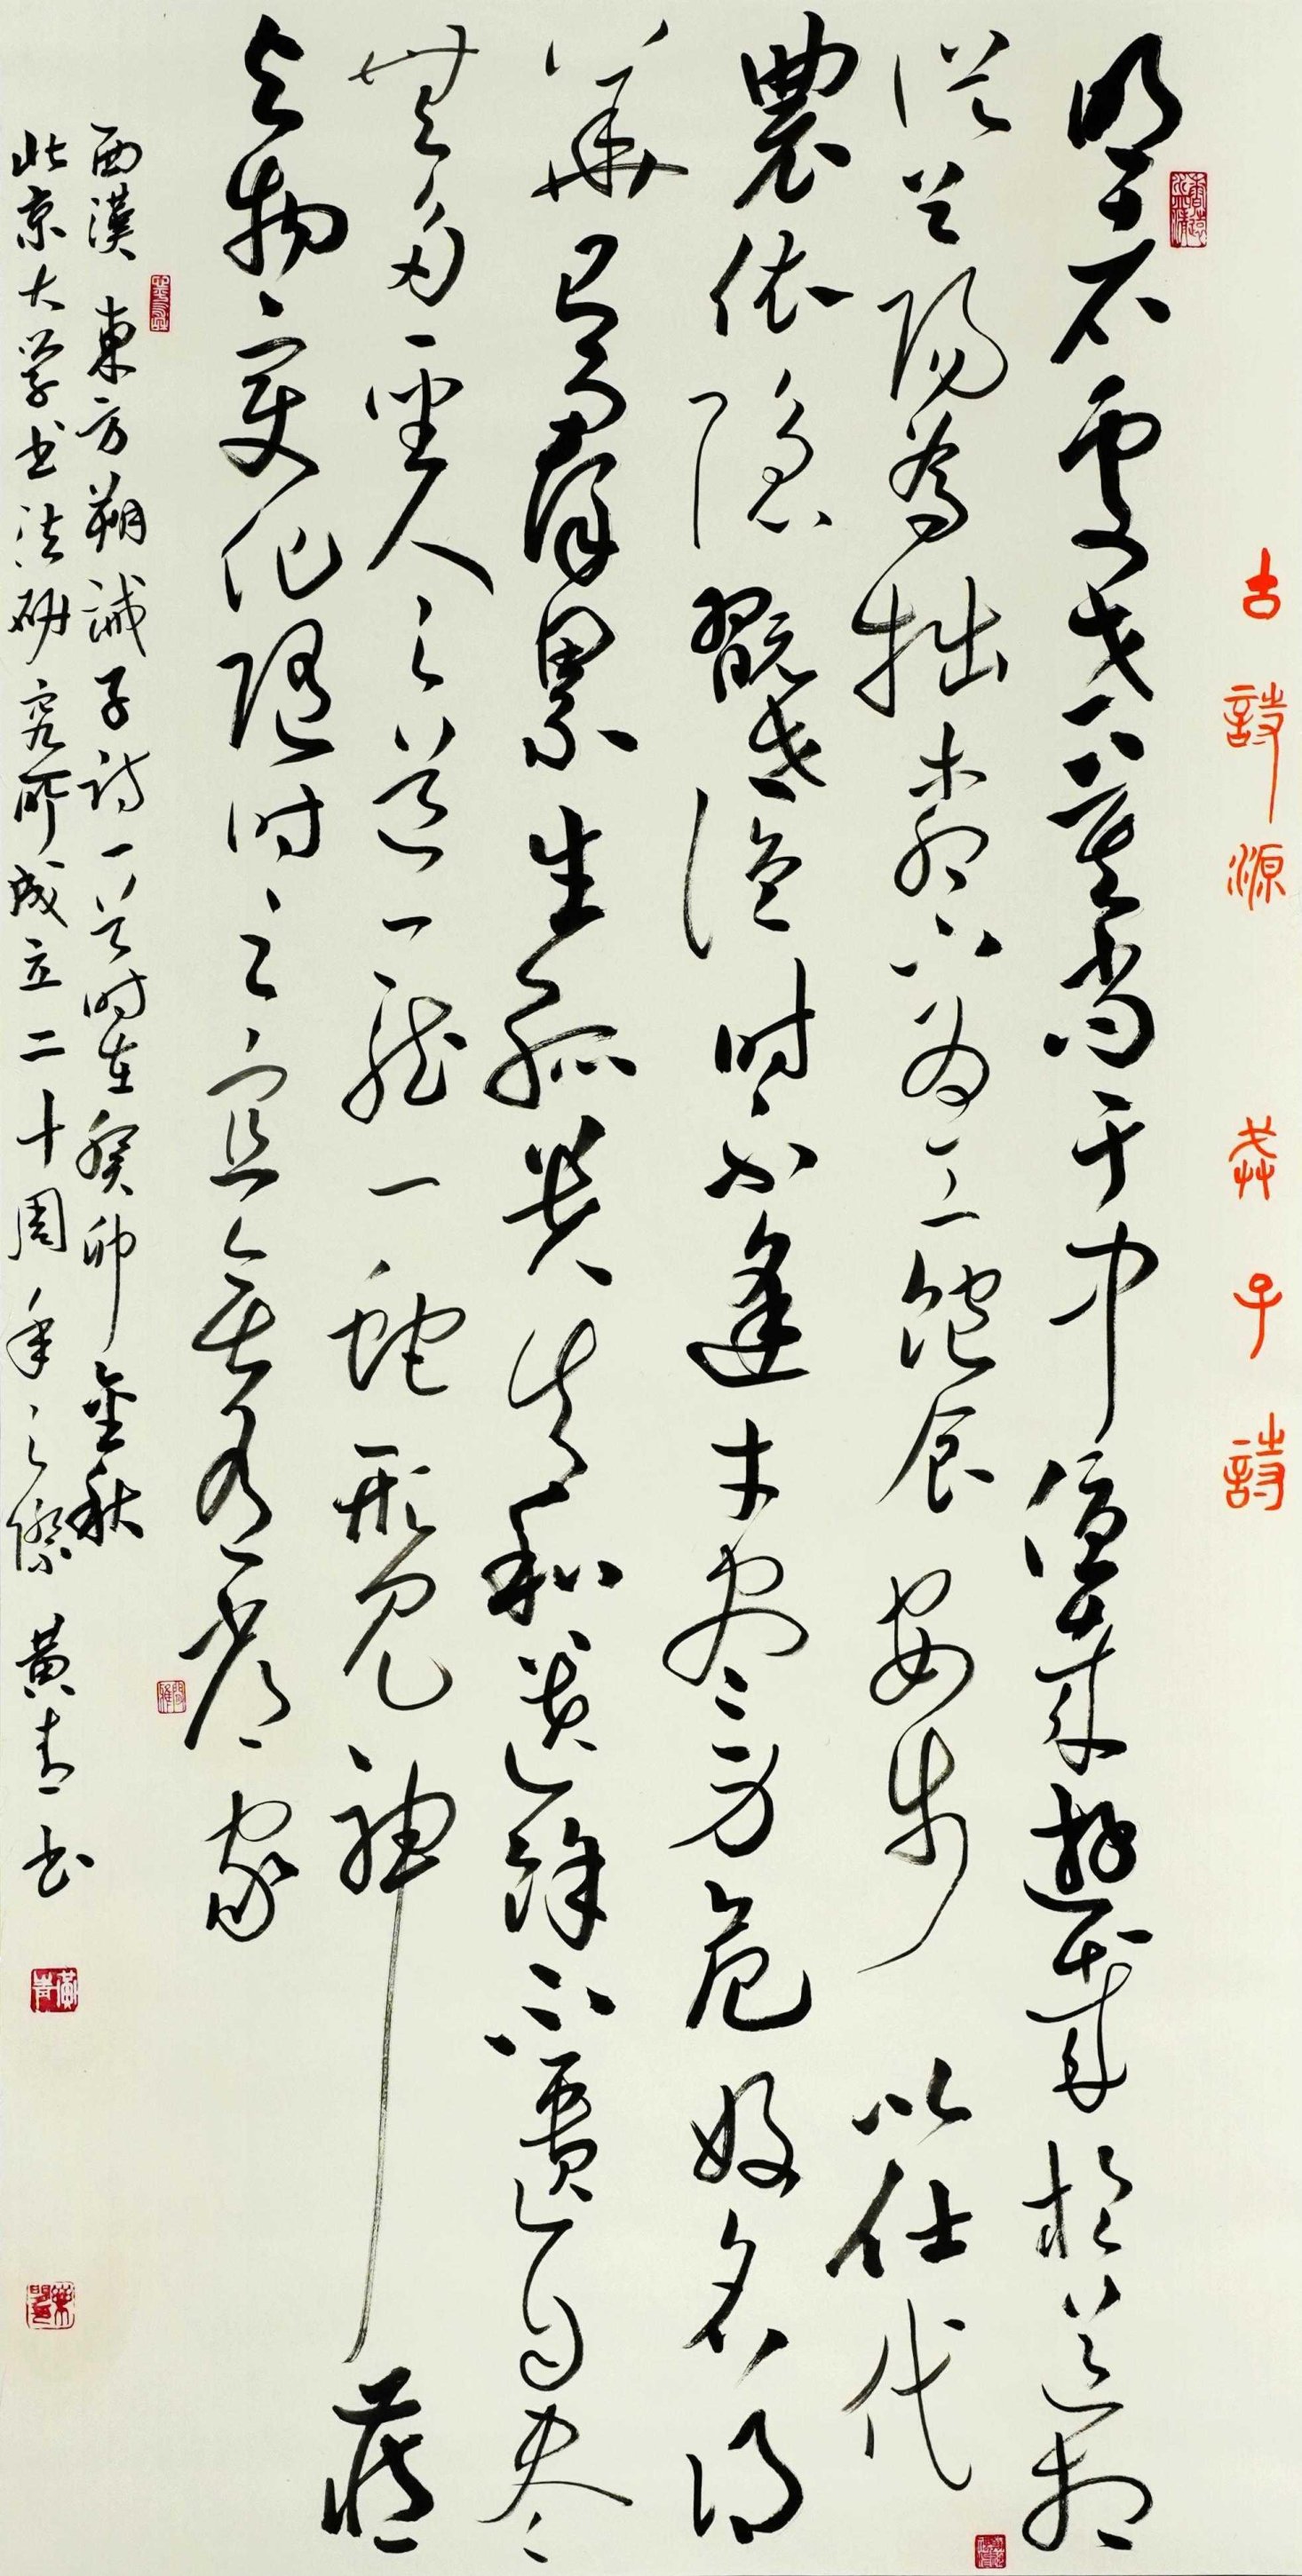 古詩源 誡子詩
明者處世莫尚于中優哉遊哉於道相
從首陽為拙柳惠為工飽食安步以仕代
農依隱翫世詭時不逢才尽身危好名得
華有群累生孤貴失和遺餘不匱自尽
無多聖人之道一龍一蛇形見神藏
与物变化隨时之宜無有常家
西漢東方朔誡子詩一首时在癸卯金秋
北京大学书法研究所成立二十周年之際 黃青书
黃青